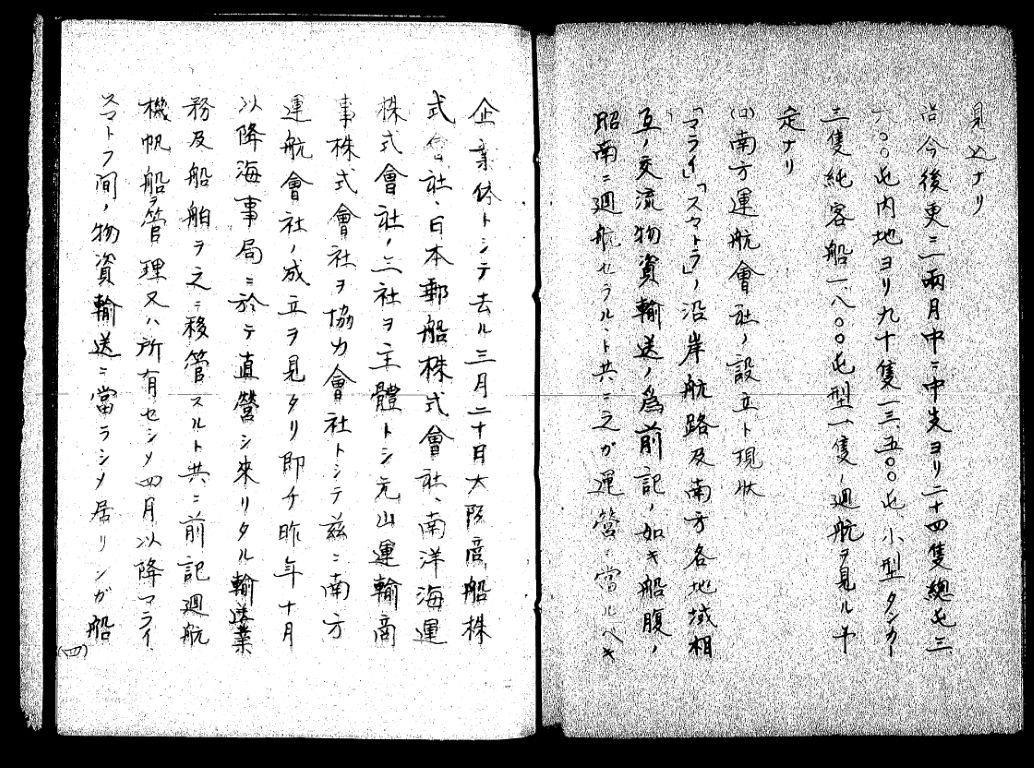 見込ナリ
尚今後更ニ一兩月中ニ中支ヨリ二十四隻總屯三
六〇〇屯内地ヨリ九十隻一三、五〇〇屯小型タンカー
三隻純客船一、八〇〇屯型一隻ノ廻航ヲ見ル予
定ナリ
(ロ)南方運航會社ノ設立ト現狀
「マライ」「スマトラ」ノ沿岸航路及南方各地域相
互ノ交流物資輸送ノ爲前記ノ如キ船腹ノ
昭南ニ廻航セラルヽト共ニ之ガ運營ニ當ルベキ
企業体トシテ去ル三月二十日大阪商船株
式会社、日本郵船株式會社、南洋海運
株式會社ノ三社ヲ主體トシ元山運輸商
事株式會社ヲ協力會社トシテ茲ニ南方
運航會社ノ成立ヲ見タリ即チ昨年十月
以降海事局ニ於テ直營シ來リタル輸送業
務及船舶ヲ之ニ移管スルト共ニ前記廻航
機帆船ヲ管理又ハ所有セシメ四月以降マライ、
スマトラ間ノ物資輸送ニ當ラシメ居リシガ船
(四)